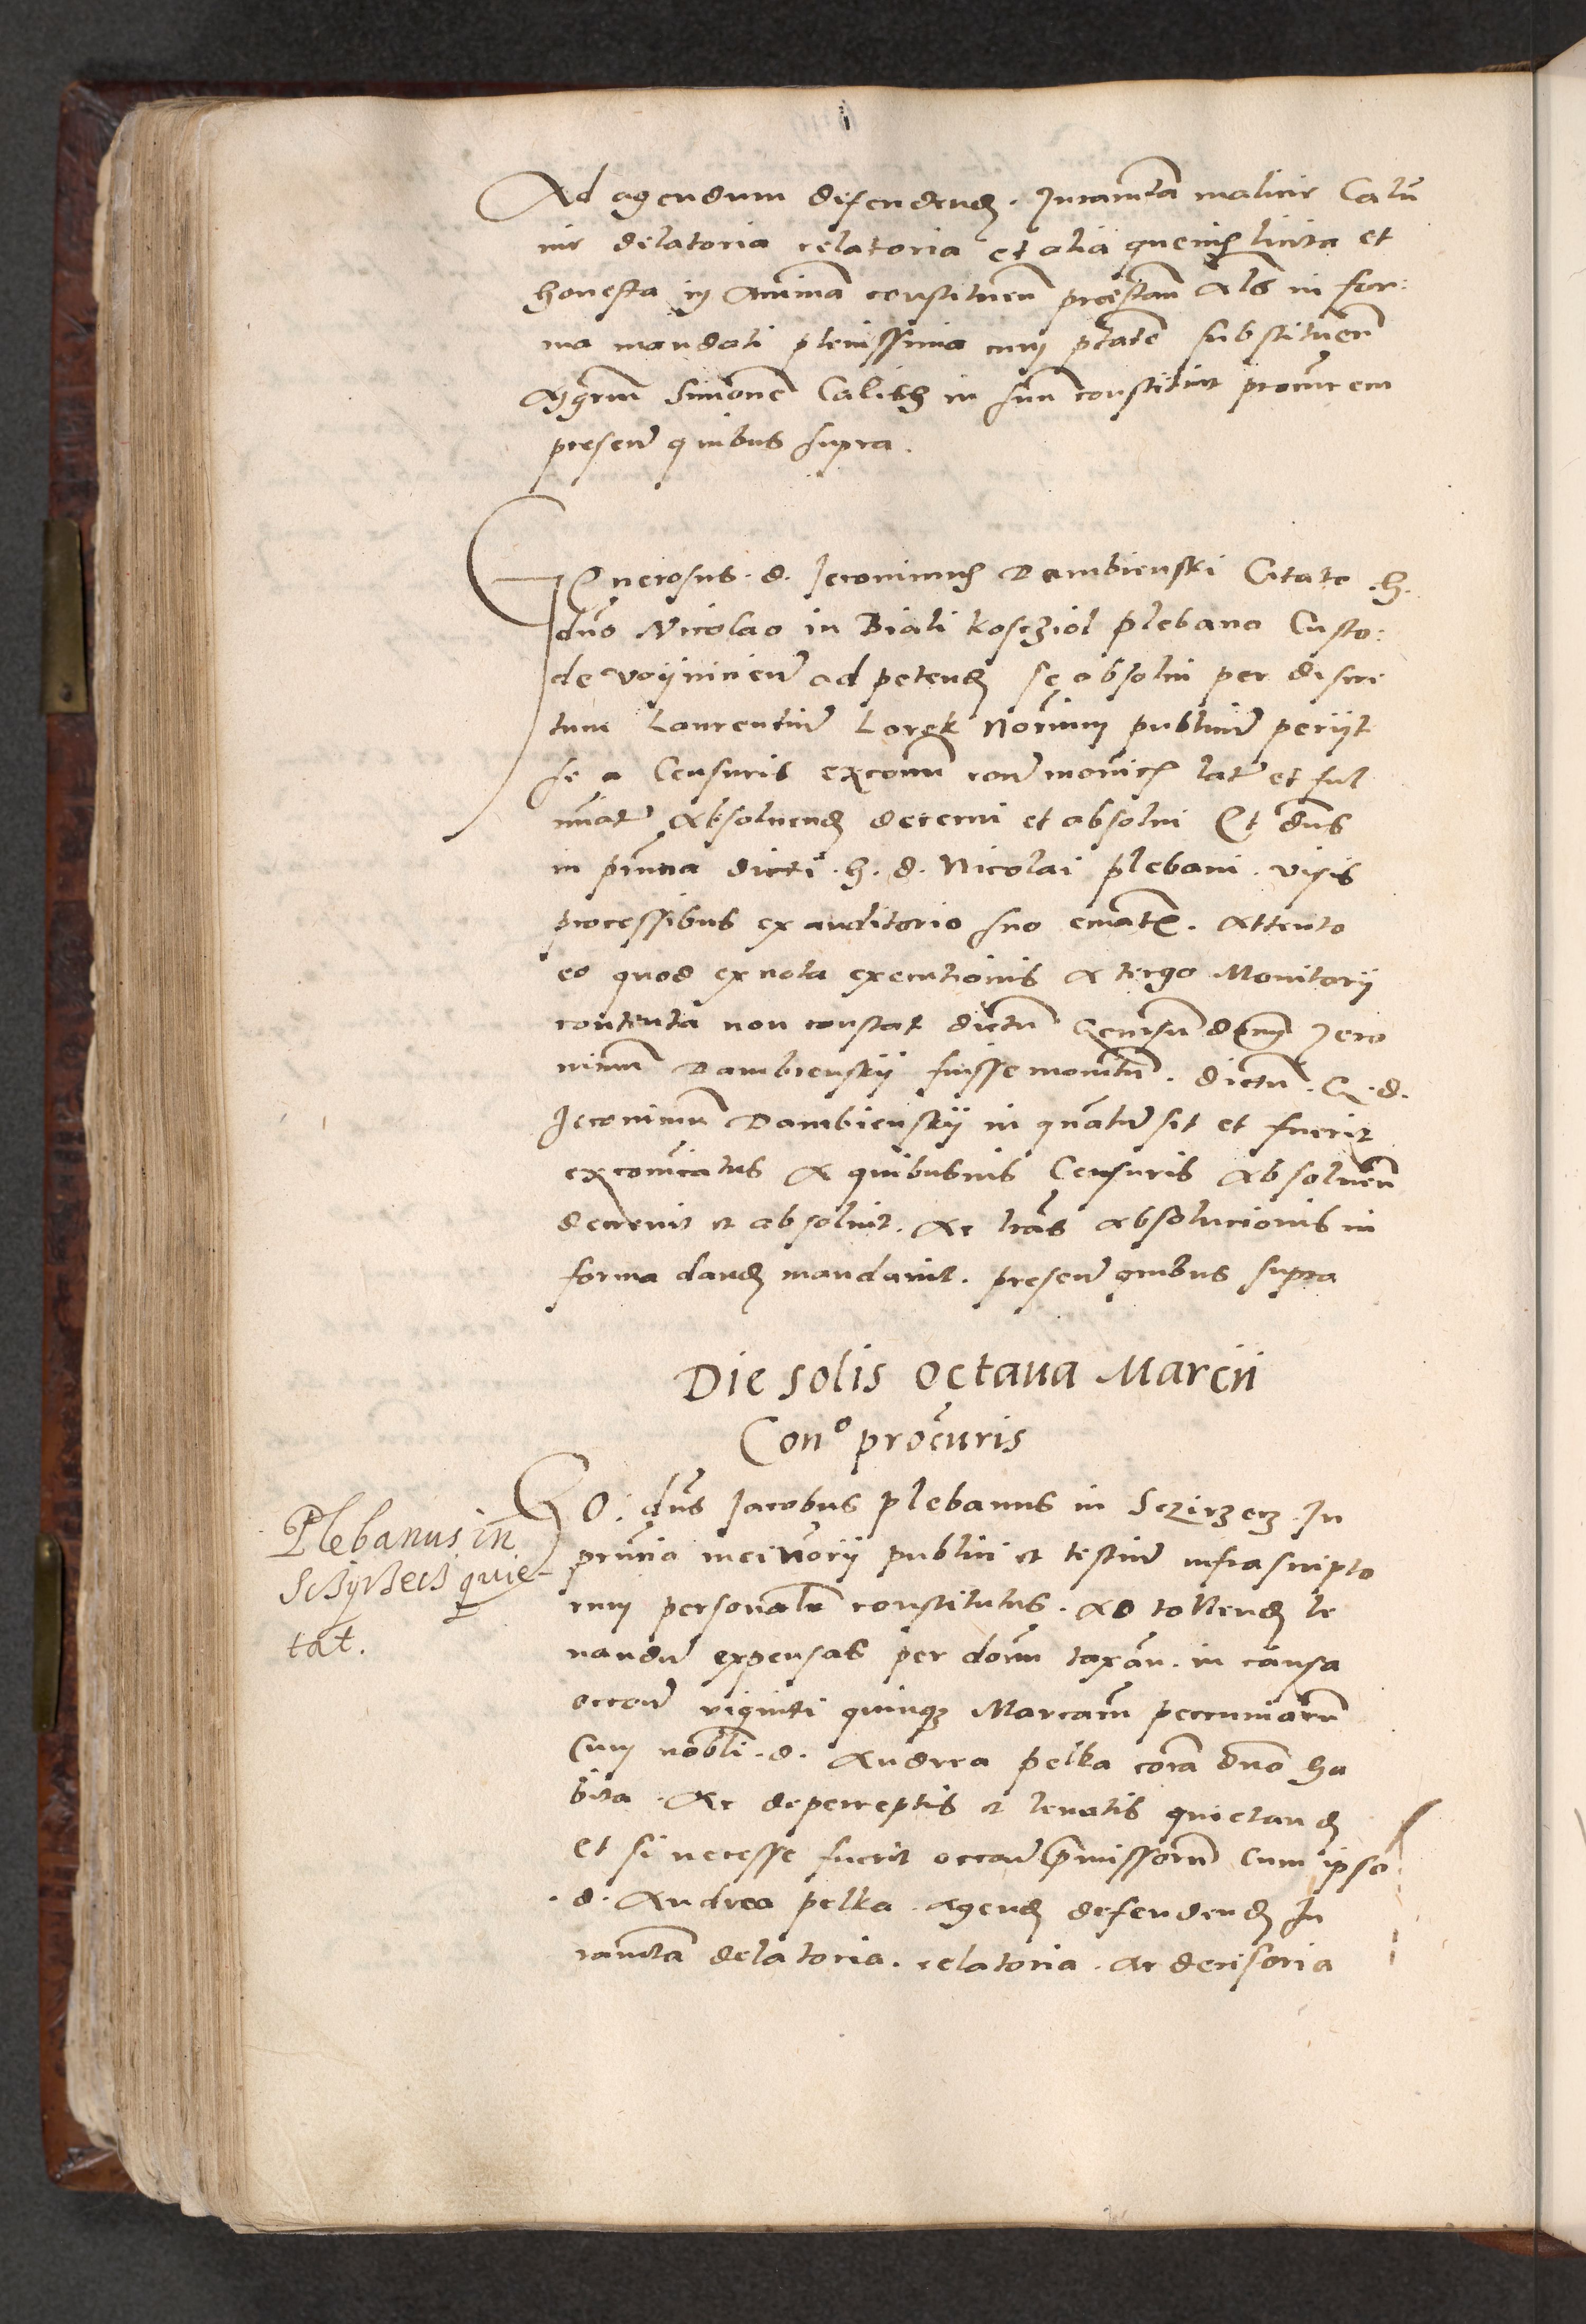 Ad agendum defendend. Juramta malicie Calū
nie delatoria relatoria et alia quevis licita et
honesta in animā constituen prestan Als in for:
ma mandati plenissima cum ptate substituen
Mgrm Simonē Calish in suū constituit procurem
presen quibus supra.
Generosus. d. Jeronimus Dambienski Citato .h.
dno Nicolao in Biali koscziol plebano Custo:
de voynicien ad petend se absolui per discre
tum Laurentium Lorek Norium publicum periit
se a Censuris excom con monics latis et ful
minatis absoluend decerni et absolui Et dns
in pntia dicti .h. d. Nicolai plebani. visis
processibus ex auditorio suo emats. Attento
eo quod ex nota executionis a tergo Monitorii
contenta non constat dictū Genrosū dnm Jero
nimū Dambienskij fuisse monitū. dictū. G. d.
Jeronimū Dambienskij in quātum sit et fuerit
excomcatus a quibusuis Censuris absoluen
decrevit et absoluit. Ac lras absolucionis in
forma dand mandavit. presen quibus supra
Die solis octaua Marcii
Con⁰ procuris
Plebanus in
Sczyrzecz quie-
tat.
HO. dns Jacobus plebanus in Sczirzecz. In
pruntia mei norii publici et testium infrascripto
rum personalr constitutus. Ad tollend le
uandum expensas per dnm taxan. in causa
occone viginti quinque Marcarū peccuniarū
Cum nobli. d. Andrea pelka corā dno ha
bita. Ac de perceptis et leuatis quietand
et si necesse fuerit occone pmissorū cum ipso
. d. Andrea pelka. agend defendend Ju
ramta delatoria. relatoria. ac decisoria